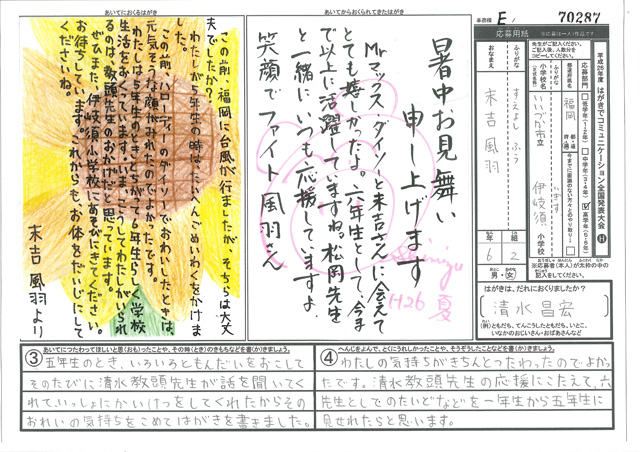 あいてにおくるはがき
この前、福岡に台風が行きましたが、そちらは大丈
夫でしたか?
わたしが5年生の時はたいへんごめいわくをかけま
した。
この前、ハローデイのダイソーでおあいしたときは、
元気そうな顔がみれたのでよかったです。
わたしは5年生のときとちがって6年生らしく学校
生活をおくっています。いま、こうしてわたしがいられ
るのは、教頭先生のおかげだと思っています。
ぜひまた、伊岐須小学校にあそびにきてください。
お待ちしています。これからも、お体をだいじにして
くださいね。
末吉 風羽より
あいてからおくられてきたはがき
暑中お見舞い
申し上げます
Mrマックス・ダイソーと末吉さんに会えて
とても嬉しかったよ。六年生として、今ま
で以上に活躍していますね。松岡先生
と一緒に、いつも応援していますよ。
笑顔でファイト風羽さん
Shimizu
H26 夏
事務欄 E
70287
応募用紙
※応募は一人1作品です
先生がご記入ください。
ご記入後、人数分を
コピーしてください。
平成26年度 はがきでコミュニケーション全国発表大会
応募部門
低学年(1~2年)
中学年(3・4年)
高学年(5・6年)
都道府県名
福岡
都・道
府・県
ふりがな
小学校名
(正式名称)
いいづか市立
いぎす
伊岐須
小学校
ふりがな
すえよし ふう
おなまえ
末吉 風羽
6年
2組
男・女
※応募者(本人)が太枠の中の
記入をしてください。
はがきは、だれにおくりましたか?
清水昌宏
(例)ともだち、てんこうしたともだち、いとこ、
いなかのおじいさん・おばあさんなど
③ あいてにつたわってほしいと思(おも)ったことや、その時(とき)のきもちなどを書(か)きましょう。
五年生のとき、いろいろともんだいをおこして
そのたびに清水教頭先生が話を聞いてく
れて、いっしょにかいけつをしてくれたからその
おれいの気持ちをこめてはがきを書きました。
④ へんじをよんで、とくにうれしかったことや、そうぞうしたことなどを書(か)きましょう。
わたしの気持ちがきちんとつたわったのでよかっ
たです。清水教頭先生の応援にこたえて、六
年生としてのたいどなどを一年生から五年生に
見せれたらと思います。